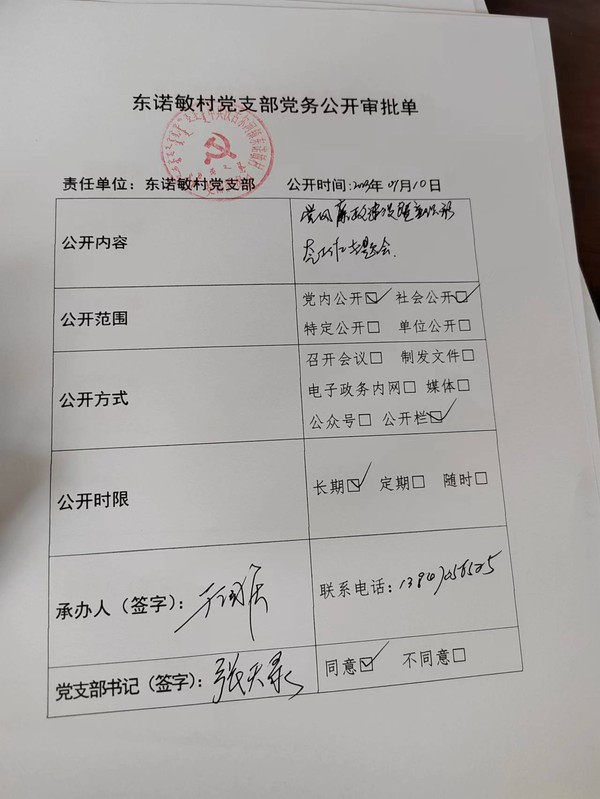 东诺敏村党支部党务公开审批单
责任单位：东诺敏村党支部 公开时间：2023年07月10日
公开内容
党风廉政建设
专题会
公开范围
党内公开☑ 社会公开☑
特定公开□ 单位公开□
公开方式
召开会议□ 制发文件□
电子政务内网□ 媒体□
公众号□ 公开栏☑
公开时限
长期☑ 定期□ 随时□
承办人（签字）：
联系电话：
党支部书记（签字）：张天
同意☑ 不同意□